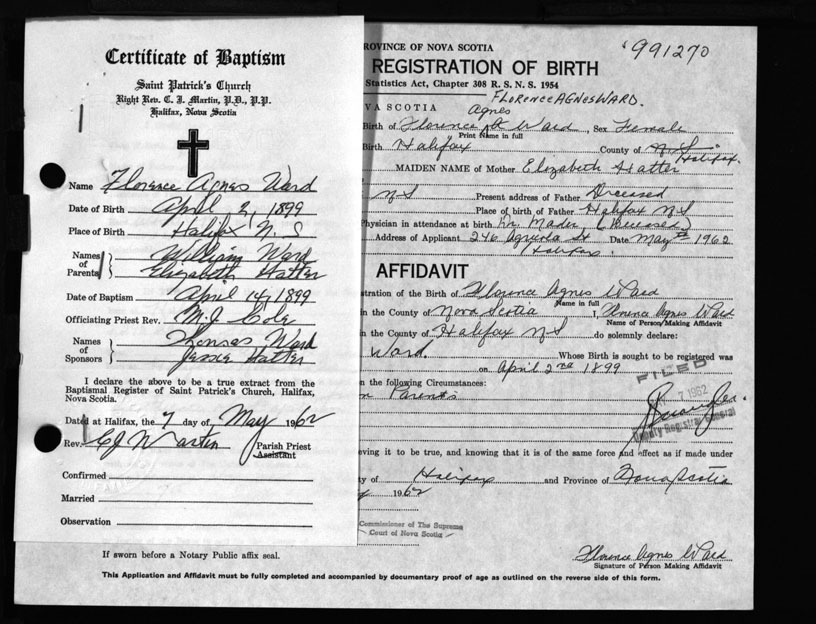 Certificate of Baptism
Saint Patrick's Church
Right Rev. C. J. Martin, P.D., P.P.
Halifax, Nova Scotia
Name Florence Agnes Ward
Date of Birth April 2, 1899
Place of Birth Halifax N. S
Names of Parents William Ward
Elizabeth Hatter
Date of Baptism April 14, 1899
Officiating Priest Rev. M. J. Cole
Names of Sponsors Thomas Ward
Jessie Hatter
I declare the above to be a true extract from the
Baptismal Register of Saint Patrick's Church, Halifax,
Nova Scotia.
Dated at Halifax, the 7 day of May 1962
Rev. C J Martin Parish Priest
Assistant
Confirmed
Married
Observation
ROVINCE OF NOVA SCOTIA
991270
REGISTRATION OF BIRTH
Statistics Act, Chapter 308 R. S. N. S. 1954
FLORENCE AGNES WARD.
VA SCOTIA
Agnes
Birth of Florence A Ward Sex Female
Print Name in full
Birth Halifax County of N.S.
Halifax.
MAIDEN NAME of Mother Elizabeth Hatter
NS Present address of Father Deceased
Place of birth of Father Halifax NS
Physician in attendance at birth Dr. Mader (Deceased)
Address of Applicant 246 St Date May 1962
Halifax.
AFFIDAVIT
stration of the Birth of Florence Agnes Ward
Name in full
in the County of Nova Scotia I, Florence Agnes Ward
Name of Person Making Affidavit
in the County of Halifax NS do solemnly declare:
Ward. Whose Birth is sought to be registered was
on April 2nd 1899
FILED
n the following Circumstances:
7 1962
n Parents
Deputy Registrar General
eving it to be true, and knowing that it is of the same force and effect as if made under
ty of Halifax and Province of Nova Scotia
y 1962
Commissioner of The Supreme
Court of Nova Scotia
If sworn before a Notary Public affix seal.
Florence Agnes Ward
Signature of Person Making Affidavit
This Application and Affidavit must be fully completed and accompanied by documentary proof of age as outlined on the reverse side of this form.